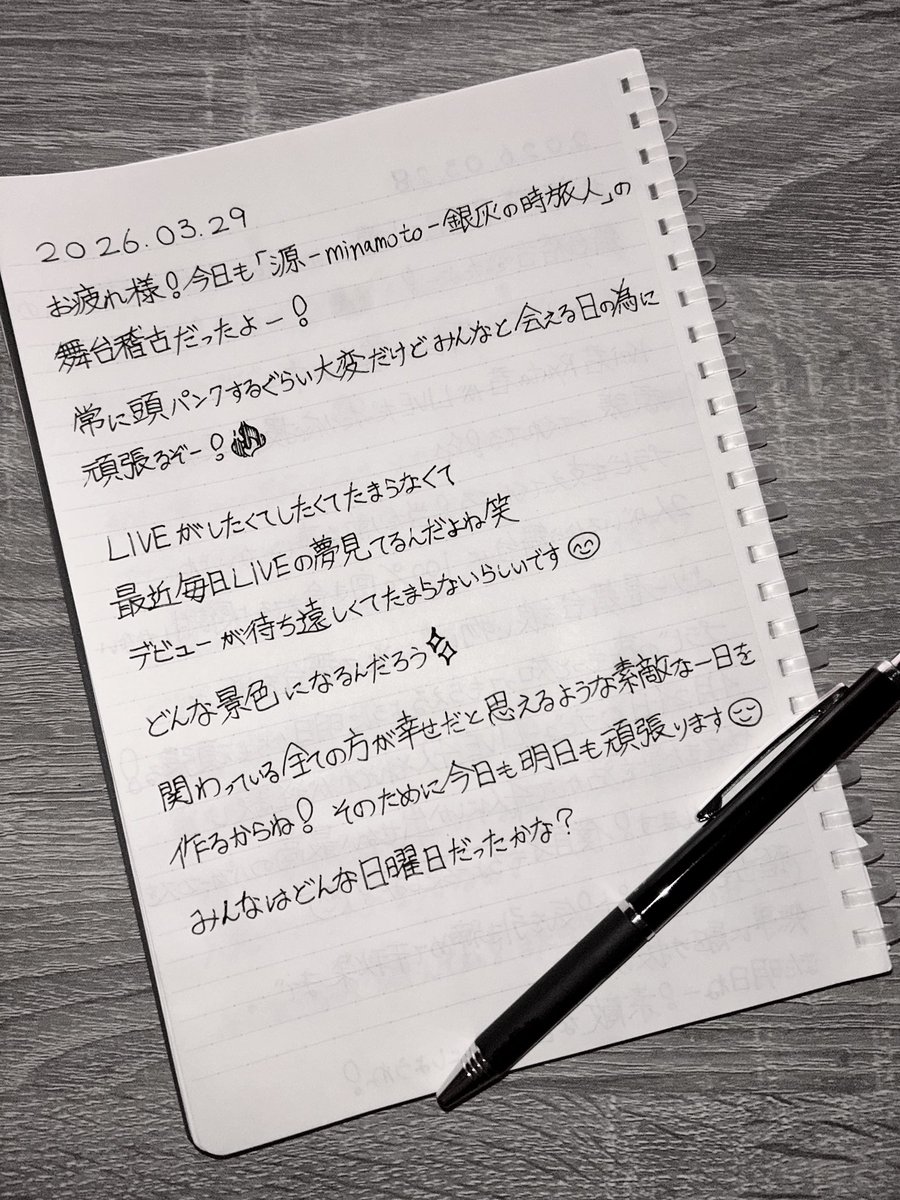 2026.03.29
お疲れ様!今日も「源-minamoto-銀灰の時旅人」の
舞台稽古だったよー!
常に頭パンクするぐらい大変だけどみんなと会える日の為に
頑張るぞー!
LIVEがしたくてしたくてたまらなくて
最近毎日LIVEの夢見てるんだよね笑
デビューが待ち遠しくてたまらないらしいです
どんな景色になるんだろう
関わっている全ての方が幸せだと思えるような素敵な一日を
作るからね! そのために今日も明日も頑張ります
みんなはどんな日曜日だったかな?
2026.03.28